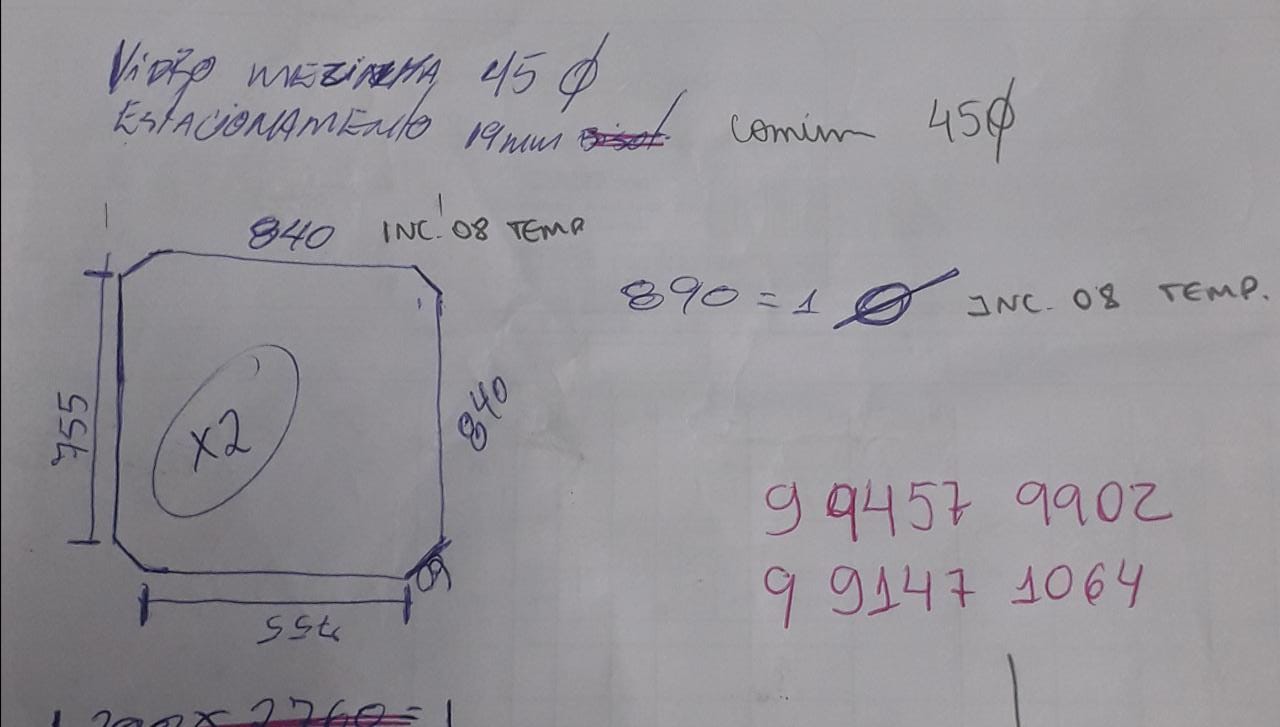 VIDRO MEZINHA 45 Ø
ESTACIONAMENTO 19mm Bisot. comum 45Ø
840 INC. 08 TEMP
890 = 1 Ø INC. 08 TEMP.
755
X2
840
60
755
9 9457 9902
9 9147 1064
2760 = 1